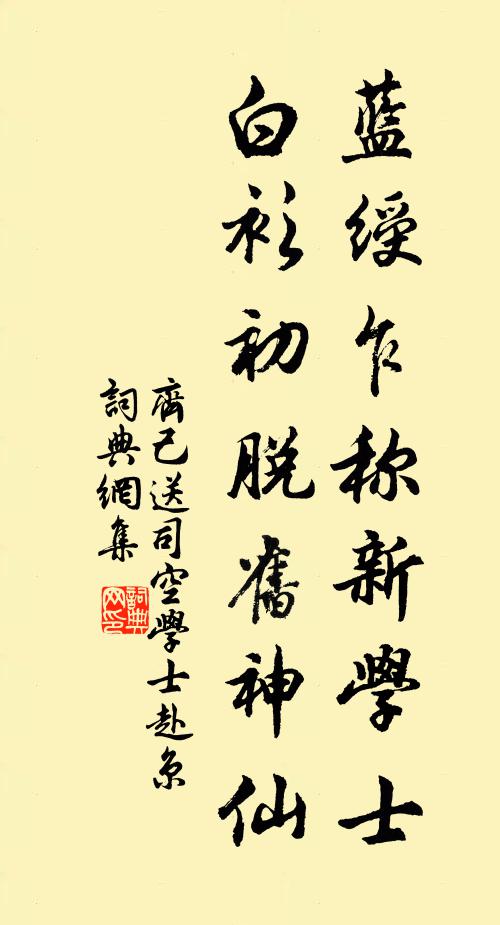 藍綬乍称新學士
白衫初脱舊神仙
齊己送司空學士赴京
詞典網集
詞典網印